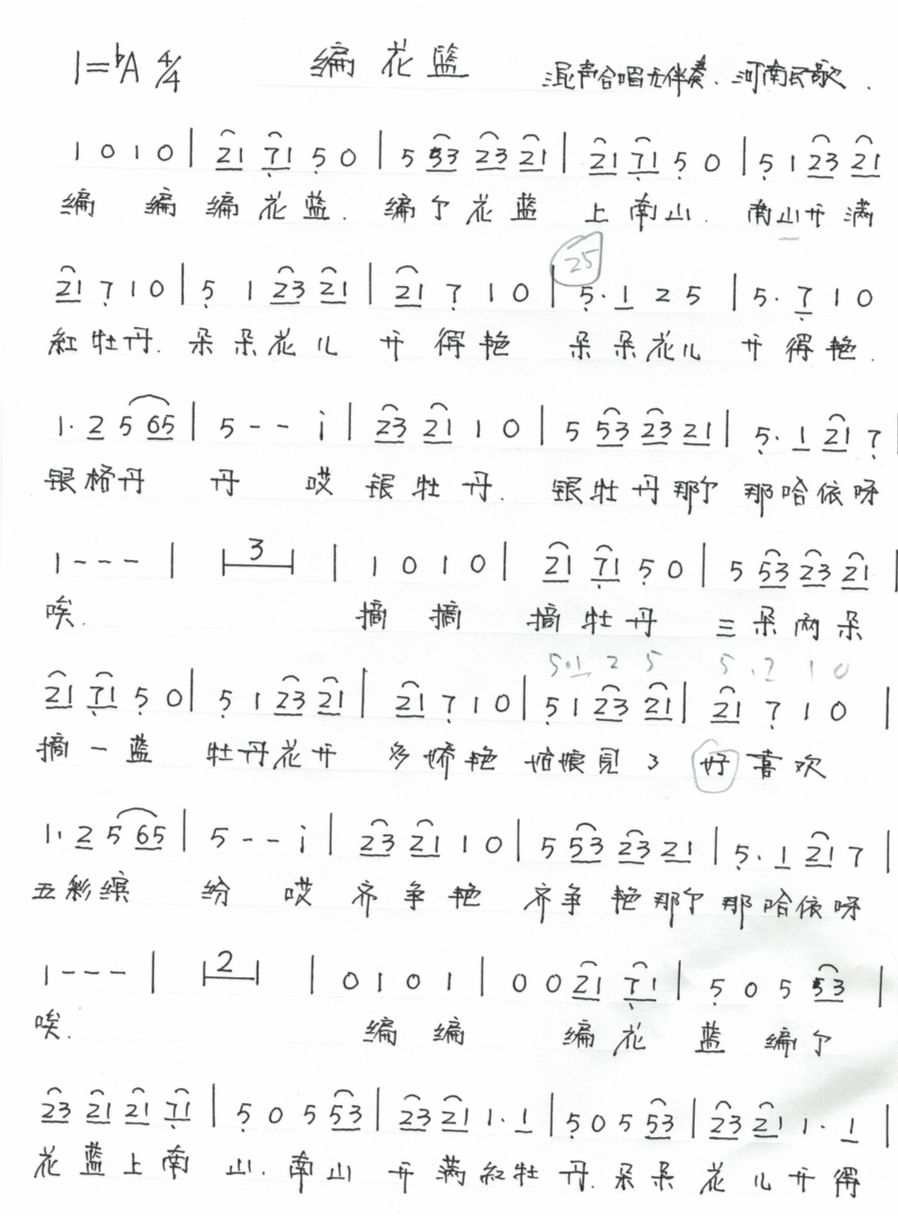 1=♭A 4/4 编花篮 混声合唱无伴奏. 河南民歌.
1 0 1 0 | 21 71 5 0 | 5 53 23 21 | 21 71 5 0 | 5 1 23 21
编 编 编花蓝. 编个花蓝 上南山. 南山开满
25
21 7 1 0 | 5 1 23 21 | 21 7 1 0 | 5. 1 2 5 | 5. 7 1 0
红牡丹. 朵朵花儿 开得艳 朵朵花儿 开得艳.
1. 2 5 65 | 5 - - i | 23 21 1 0 | 5 53 23 21 | 5. 1 21 7 |
银格丹 丹 哎 银牡丹. 银牡丹那个 那哈依呀
1 - - - | 3 | 1 0 1 0 | 21 71 5 0 | 5 53 23 21 |
唉. 摘 摘 摘牡丹 三朵两朵
5.1 2 5 5.7 1 0
21 71 5 0 | 5 1 23 21 | 21 7 1 0 | 5 1 23 21 | 21 7 1 0 |
摘一蓝 牡丹花开 多娇艳 姑娘见了 好喜欢
1. 2 5 65 | 5 - - i | 23 21 1 0 | 5 53 23 21 | 5. 1 21 7 |
五彩缤 纷 哎 齐争艳 齐争艳那个 那哈依呀
1 - - - | 2 | 0 1 0 1 | 0 0 21 71 | 5 0 5 53 |
唉. 编 编 编花 蓝 编个
23 21 21 71 | 5 0 5 53 | 23 21 1. 1 | 5 0 5 53 | 23 21 1. 1 |
花蓝上南 山. 南山 开满红牡 丹. 朵朵 花儿开得